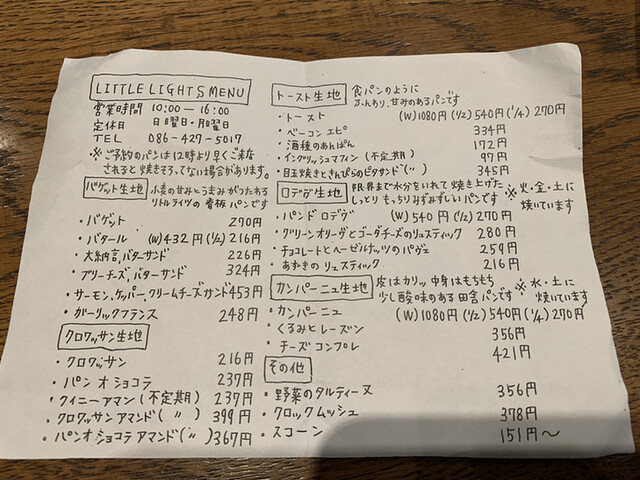 LITTLE LIGHTS MENU
営業時間 10:00-16:00
定休日 日曜日・月曜日
TEL 086-427-5017
※ご予約のパンは12時より早くご来店
されると焼きそろってない場合があります。
バゲット生地 小麦の甘みとうまみがつたある
リトルライツの看板パンです
・バゲット 270円
・バタール (W)432円(1/2)216円
・大納言,バターサンド 226円
・ブリーチーズバターサンド 324円
・サーモン,ケッパー,クリームチーズサンド453円
・ガーリックフランス 248円
クロワッサン生地
・クロワッサン 216円
・パンオショコラ 237円
・クイニーアマン(不定期) 237円
・クロワッサンアマンド(〃) 399円
・パンオショコラアマンド(〃)367円
トースト生地 食パンのように
ふんわり,甘みのあるパンです
・トースト (W)1080円(1/2)540円(1/4)270円
・ベーコンエピ 334円
・酒種のあんぱん 172円
・イングリッシュマフィン(不定期) 97円
・目玉焼きときんぴらのピタサンド(〃) 345円
ロデヴ生地 限界まで水分をいれて焼き上げた
しっとりもっちりみずみずしいパンです ※火・金・土に
焼いています
・パンドロデヴ (W)540円(1/2)270円
・グリーンオリーヴとゴーダチーズのリュスティック 280円
・チョコレートとヘーゼルナッツのパヴェ 259円
・あずきのリュスティック 216円
カンパーニュ生地 皮はカリッ中身はもちもち
少し酸味のある田舎パンです ※水・土に
焼いています
・カンパーニュ (W)1080円(1/2)540円(1/4)270円
・くるみとレーズン 356円
・チーズコンプレ 421円
その他
・野菜のタルティーヌ 356円
・クロックムッシュ 378円
・スコーン 151円〜